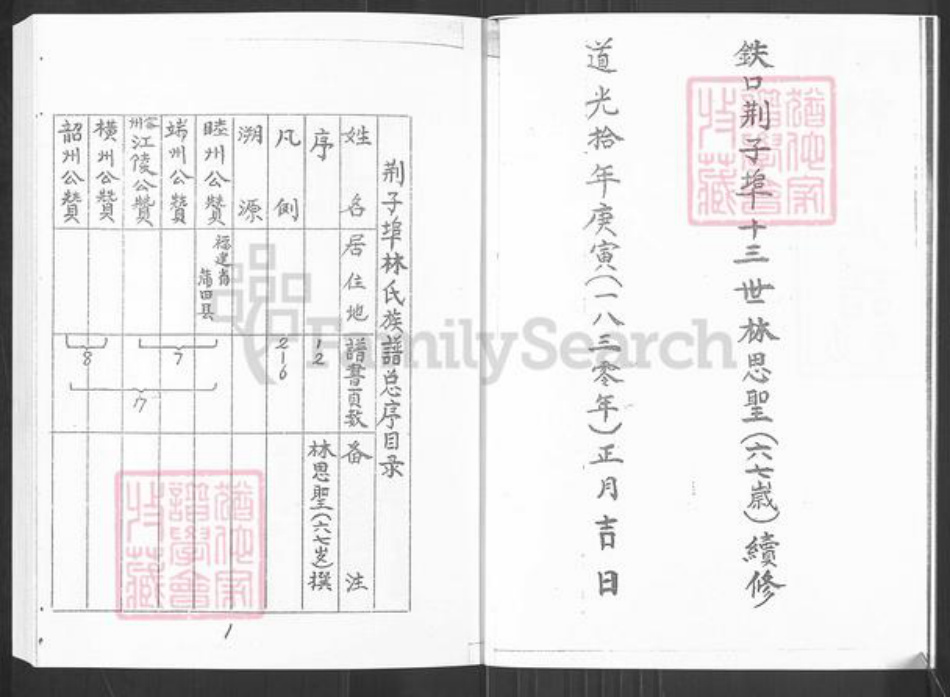 鉄口荆子埠十三世林思聖(六七嵗)續修
道光拾年庚寅(一八三零年)正月吉日
荆子埠林氏族譜总序目录
姓名 居住地 譜書頁数 备注
序 12 林思聖(六七岁)撰
凡例 2—6
溯源
睦州公贊 福建省 莆田县
端州公贊 7
江陵公贊
横州公贊 8
韶州公贊
17
1
FamilySearch